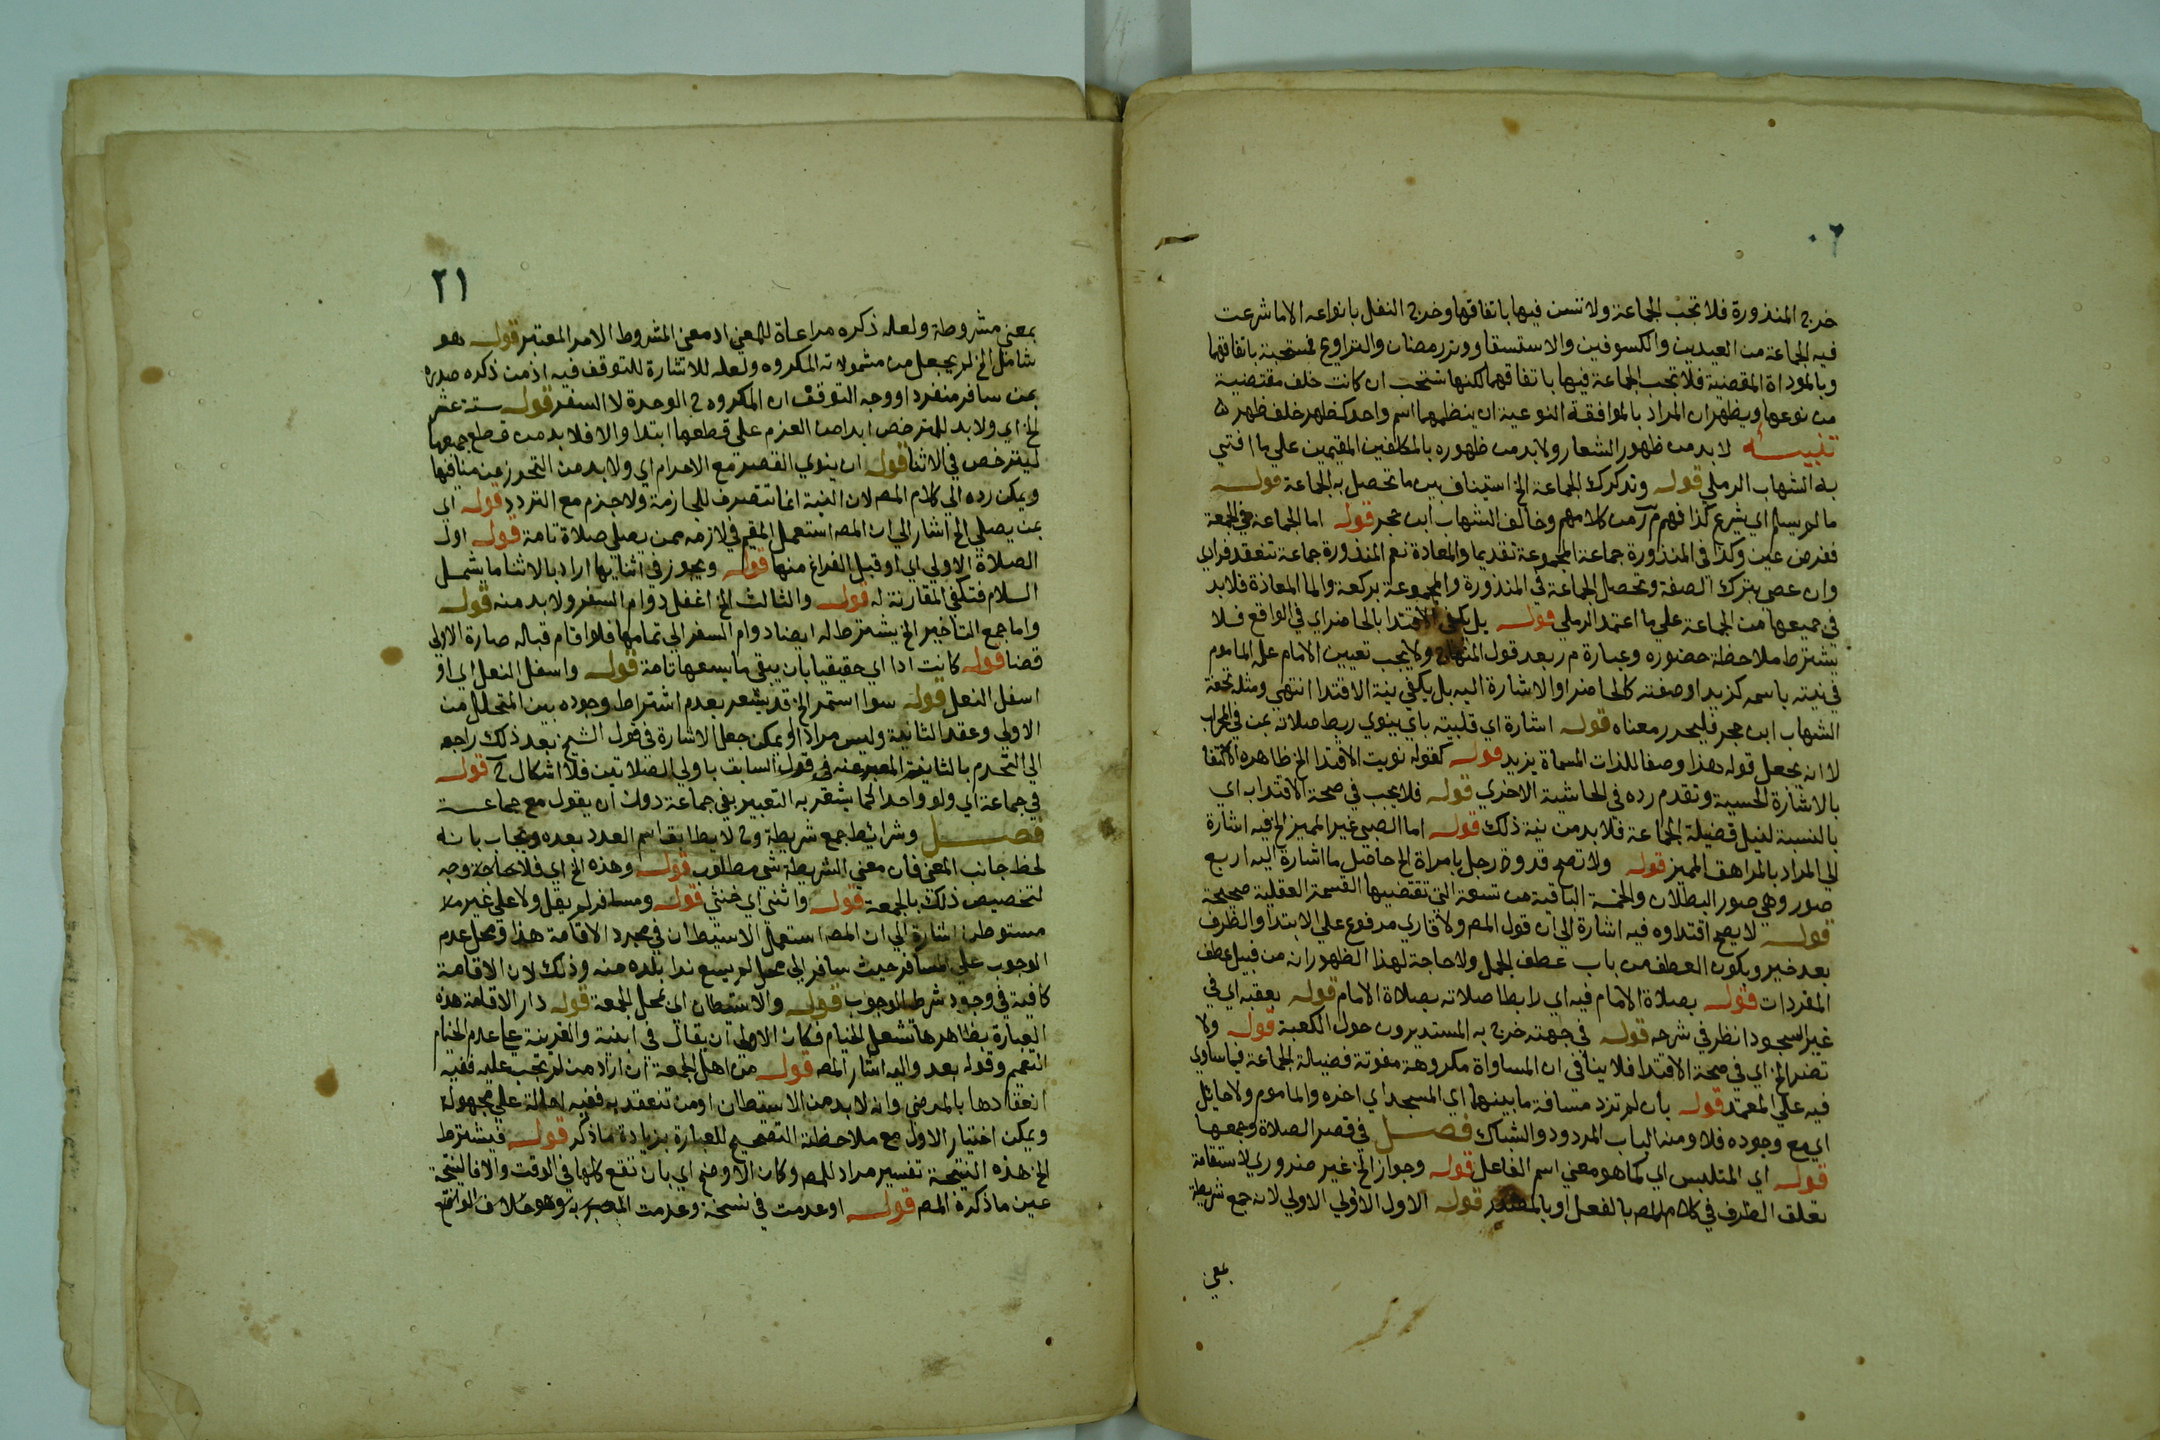 ٢٠
خرج المنذورة فلا تجب الجماعة ولا تسن فيها باتفاقها وخرج النفل بانواعه الا ما شرعت
فيه الجماعة من العيدين والكسوفين والاستسقا ووتر رمضان والتراويح فمستحبة باتفاقهما
وبالموداة المقضية فلا تجب الجماعة فيها باتفاقهما لكنها تستحب ان كانت خلف مقتضية
من نوعها ويظهر ان المراد بالموافقة النوعية ان ينظمهما اسم واحد كظهر خلف ظهر
تنبيه لا بد من ظهور الشعار ولا بد من ظهوره بالمكلفين المقيمين علي ما افتي
به الشهاب الرملي قوله وتدرك الجماعة الخ استيناف بين ما تحصل به الجماعة قوله
ما لم يسلم اي يشرع كذا فهم م ر من كلامهم وخالف الشهاب ابن حجر قوله اما الجماعة في الجمعة
ففرض عين وكذا في المنذورة جماعة المجموعة تقديما والمعادة نعم المنذورة جماعة تنعقد فرادي
وان عصي بترك الصفة وتحصل الجماعة في المنذورة والمجموعة بركعة واما المعادة فلا بد
في جميعها من الجماعة علي ما اعتمد الرملي قوله بل يكفي الاقتدا بالحاضر اي في الواقع فلا
يشترط ملاحظة حضوره وعبارة م ر بعد قول المنهاج ولا يجب تعيين الامام علي الماموم
في نيته باسمه كزيد او صفته كالحاضر او الاشارة اليه بل يكفي نية الاقتدا انتهي ومثله تحفة
الشهاب ابن حجر فليحرر معناه قوله اشارة اي قلبية باي ينوي ربط صلاته بمن في المحراب
لا انه يجعل قوله هذا وصفا للذات المسماة بزيد قوله كقوله نويت الاقتدا الخ ظاهره الاكتفا
بالاشارة الحسية وتقدم رده في الحاشية الاخري قوله فلا يجب في صحة الاقتدا به اي
بالنسبة لنيل فضيلة الجماعة فلا بد من نية ذلك قوله اما الصبي غير المميز الخ فيه اشارة
الي المراد بالمراهق المميز قوله ولا تصح قدوة رجل بامراة الخ حاصل ما اشار اليه اربع
صور وهي صور البطلان والخمسة الباقية من تسعة التي تقتضيها القسمة العقلية صحيحة
قوله لا يصح اقتداوه فيه اشارة الي ان قول المصـ ولا قاري مرفوع علي الابتدا والظرف
بعد خبر ويكون العطف من باب عطف الجمل ولا حاجة لهذا الظهور انه من قبيل عطف
المفردات قوله بصلاة الامام فيه اي رابطا صلاته بصلاة الامام قوله بعقبه اي في
غير السجود انظر في شرحه قوله في جهته خرج به المستديرون حول الكعبة قوله ولا
تضر الخ اي في صحة الاقتدا فلا ينافي ان المساواة مكروهة مفوتة فضيلة الجماعة فيما ساوي
فيه علي المعتمد قوله بان لم تزد مسافة ما بينهما اي المسجد اي اخره والماموم ولا حايل
اي مع وجوده فلا ومنه الباب المردود والشباك فصل في قصر الصلاة وجمعها
قوله اي المتلبس اي كما هو معني اسم الفاعل قوله وجواز الخ غير ضروري لاستقامة
تعلق الظرف في كلام المصـ بالفعل او بالمصدر قوله الاول الاولي الاولي لانه جمع شريطة
بمعني
٢١
بمعني مشروطة ولعله ذكره مراعاة للمعني اذ معني المشروط الامر المعتبر قوله هو
شامل الخ لم يجعل من مشمولاته المكروه ولعله للاشارة للتوقف فيه اذ من ذكره صدره
بمن سافر منفردا ووجه التوقف ان المكروه ح الوحدة لا السفر قوله ستة عشر
الخ اي ولا بد للمترخص ابدا من العزم علي قطعها ابتدا والا فلا بد من قطع جميعها
ليترخص في الاثنا قوله ان ينوي القصر مع الاحرام اي ولا بد من التحرز عن منافيها
ويمكن رده الي كلام المصـ لان النية انما تنصرف للجازمة ولا جزم مع التردد قوله اي
بمن يصلي الخ اشار الي ان المصـ استعمل المقيم في لازمه من يصلي صلاة تامة قوله اول
الصلاة الاولي اي او قبل الفراغ منها قوله ويجوز في اثنايها اراد بالاثنا ما يشمل
السلام فتكفي المقارنة له قوله والثالث الخ اغفل دوام السفر ولا بد منه قوله
واما جمع التاخير الخ يشترط له ايضا دوام السفر الي تمامها فلو اقام قباله صارة الاولي
قضا قوله كانت ادا اي حقيقيا بان يبقي ما يسعها تامة قوله واسفل النعل اي او
اسفل النعل قوله سوا استمر الخ قد يشعر بعدم اشتراط وجوده بين المتحلل من
الاولي وعقد الثانية وليس مرادا ويمكن جعل الاشارة في قول الشيخ بعد ذلك راجعه
الي التحرم بالثانية المعبر عنه في قوله السابق باولي الصلاتين فلا اشكال ح قوله
في جماعة اي ولو واحدا كما يشعر به التعبير بفي جماعة دون ان يقول مع جماعة
فصل وشرائط جمع شريطة وح لا يطابق اسم العدد بعده ويجاب بانه
لحظ جانب المعني فان معني الشريطة شي مطلوب قوله وهذه الخ اي فلا حاجة وجه
لتخصيص ذلك بالجمعة قوله وانثي اي خنثي قوله ومسافر لم يقل ولا علي غير ملا
مستوطن اشارة الي ان المصـ استعمل الاستيطان في مجرد الاقامة هذا ومحل عدم
الوجوب علي المسافر حيث سافر الي محل لم يسمع ندا بلده منه وذلك لان الاقامة
كافية في وجود شرط الوجوب قوله والاستيطان اي بمحل الجمعة قوله دار الاقامة هذه
العبارة بظاهرها تشعل الخيام فكان الاولي ان يقال في ابنية والقرينة علي عدم الخيام
التعميم وقوله بعد واليه اشار المصـ قوله من اهل الجمعة ان اراد من لم تجب عليه ففيه
انعقادها بالمرضي وانه لا بد من الاستيطان او من تنعقد به ففيه احالة علي مجهولة
ويمكن اختيار الاول مع ملاحظة التصحيح للعبارة بزيادة ما ذكر قوله فيشترط
الخ هذه النتيجة تفسير مراد للمصـ وكان الاوضح اي بان تقع كلها في الوقت والا فالنتيجة
عين ما ذكره المصـ قوله او عدمت في نسخة وعدمت وهو خلاف الواقع